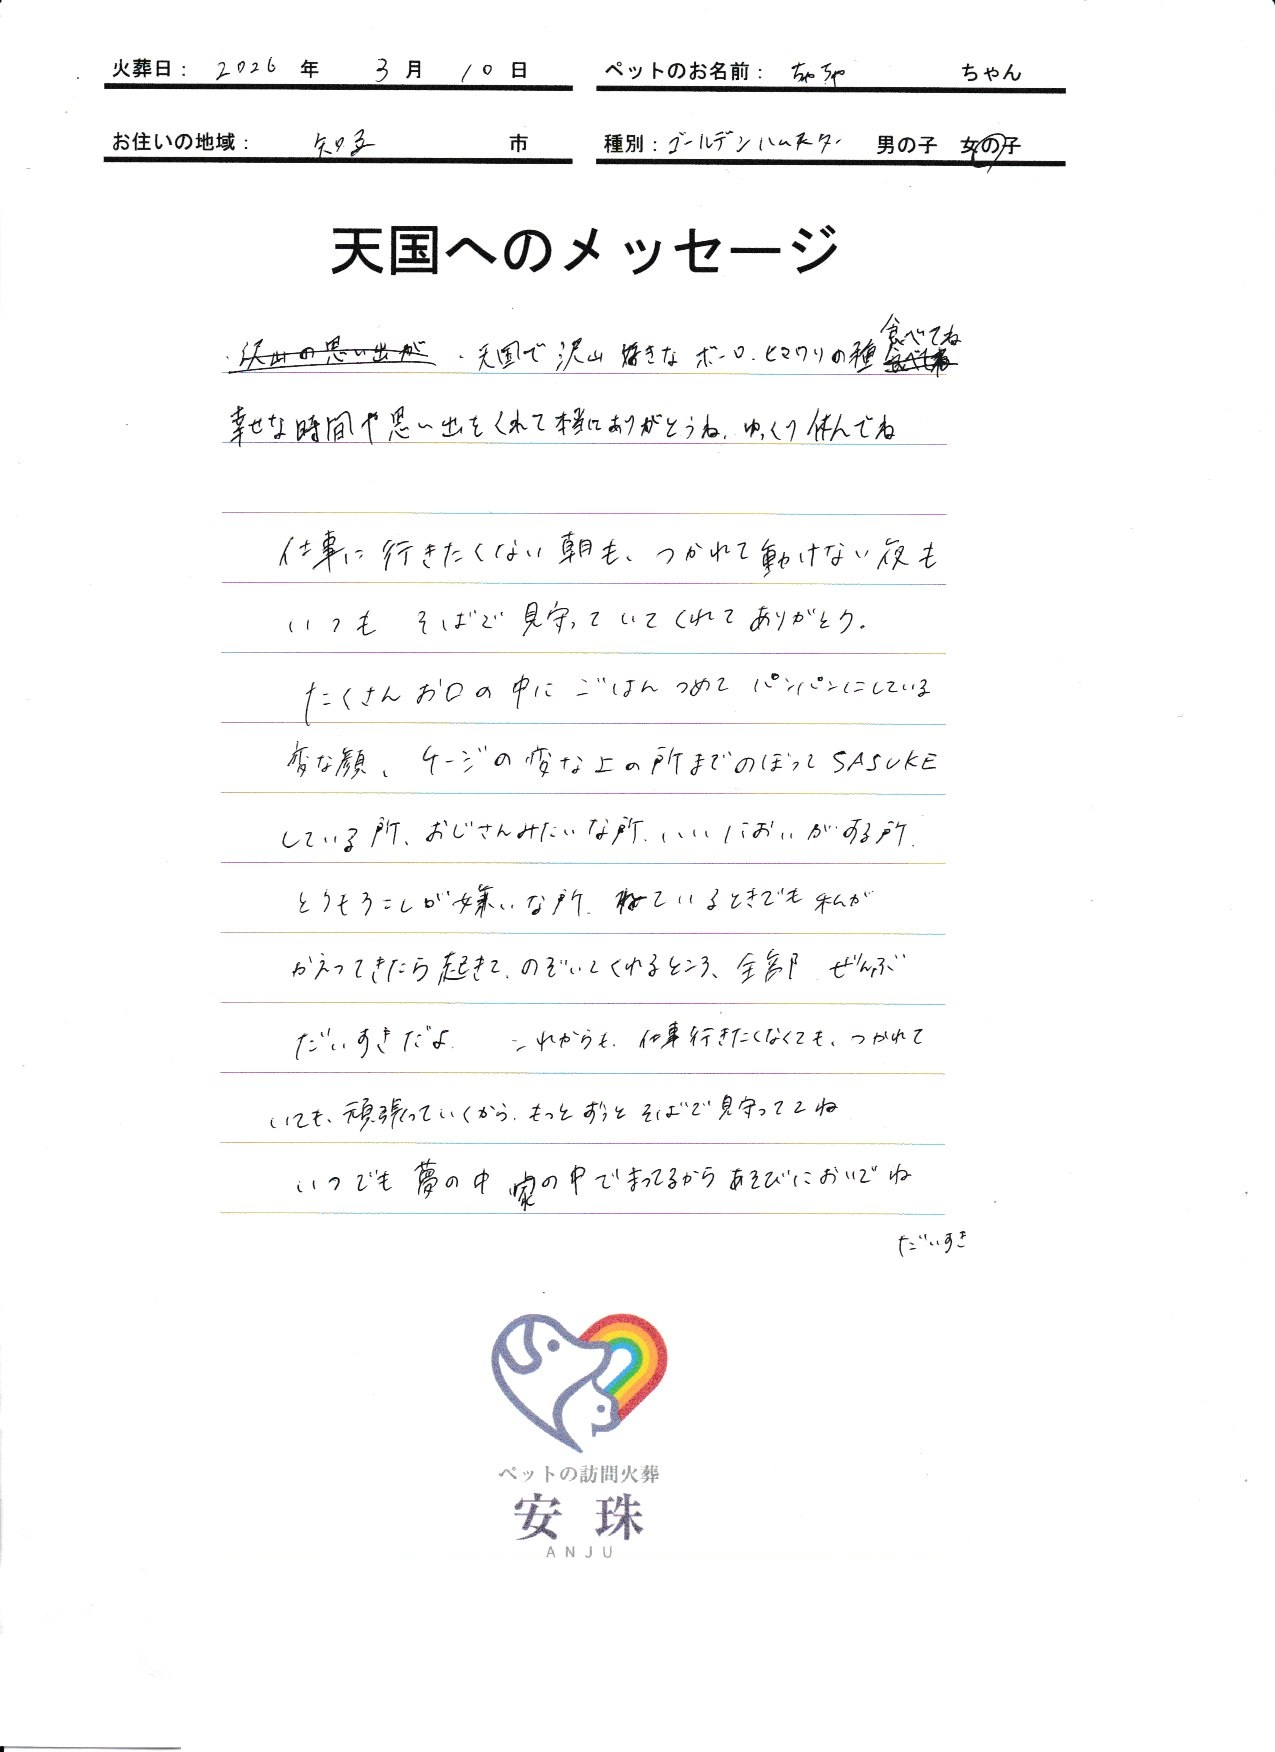 火葬日： 2026 年 3 月 10 日
ペットのお名前： ちゃちゃ ちゃん
お住いの地域： 知立 市
種別：ゴールデンハムスター 男の子 女の子
天国へのメッセージ
・沢山の思い出が ・天国で沢山 好きな ボーロ、ヒマワリの種 食べてね
幸せな時間や思い出をくれて本当にありがとうね、ゆっくり休んでね
仕事に行きたくない朝も、つかれて動けない夜も
いつも そばで見守っていてくれてありがとう。
たくさんお口の中にごはんつめて パンパンにしている
変な顔、ケージの変な上の所までのぼって SASUKE
している所、おじさんみたいな所、いいにおいがする所、
とうもろこしが嫌いな所、ねているときでも私が
かえってきたら起きて、のぞいてくれるところ、全部 ぜんぶ
だいすきだよ これからも、仕事行きたくなくても、つかれて
いても、頑張っていくから、もっとずっとそばで見守っててね
いつでも夢の中 家の中でまってるからあそびにおいでね
だいすき
ペットの訪問火葬
安珠
ANJU